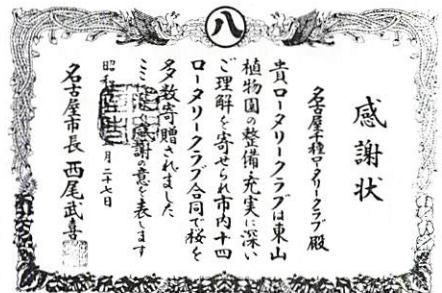 八
感謝状
名古屋千種ロータリークラブ殿
貴ロータリークラブは東山
植物園の整備・充実に深い
ご理解を寄せられ市内十四
ロータリークラブ合同で桜を
多数寄贈されました
感謝の意を表します
昭和
月二十七日
名古屋市長 西尾武喜